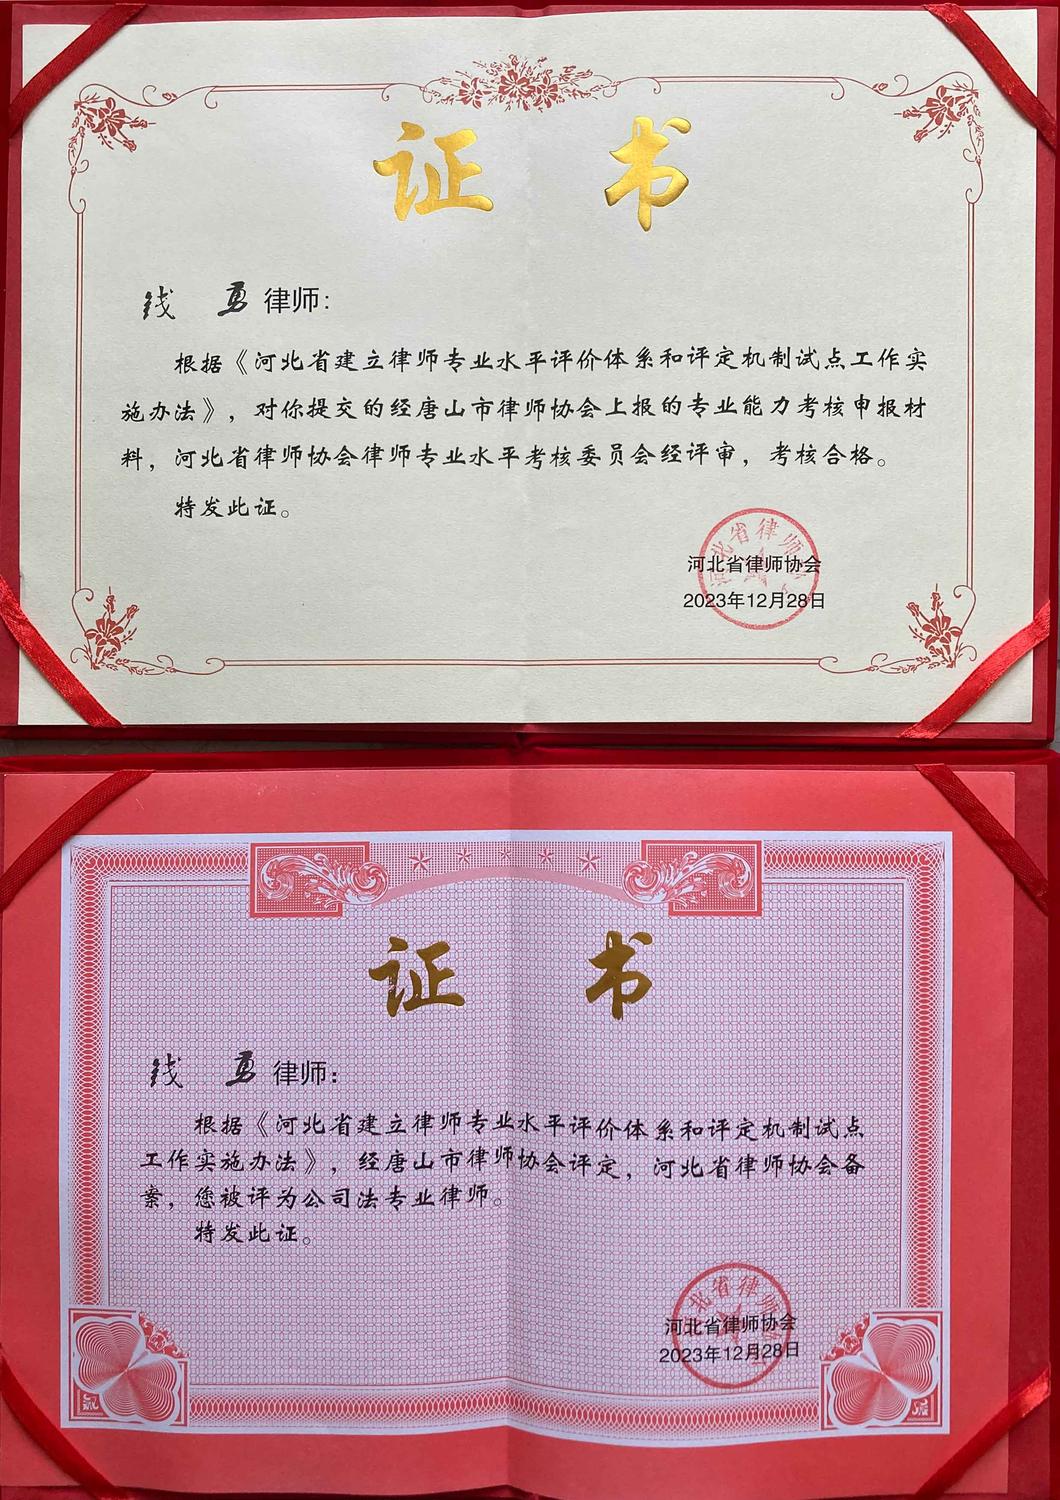 证 书
钱 勇 律师:
根据《河北省建立律师专业水平评价体系和评定机制试点工作实
施办法》，对你提交的经唐山市律师协会上报的专业能力考核申报材
料，河北省律师协会律师专业水平考核委员会经评审，考核合格。
特发此证。
河北省律师
河北省律师协会
2023年12月28日
证 书
钱 勇 律师:
根据《河北省建立律师专业水平评价体系和评定机制试点
工作实施办法》，经唐山市律师协会评定，河北省律师协会备
案，您被评为公司法专业律师。
特发此证。
河北省律师
河北省律师协会
2023年12月28日